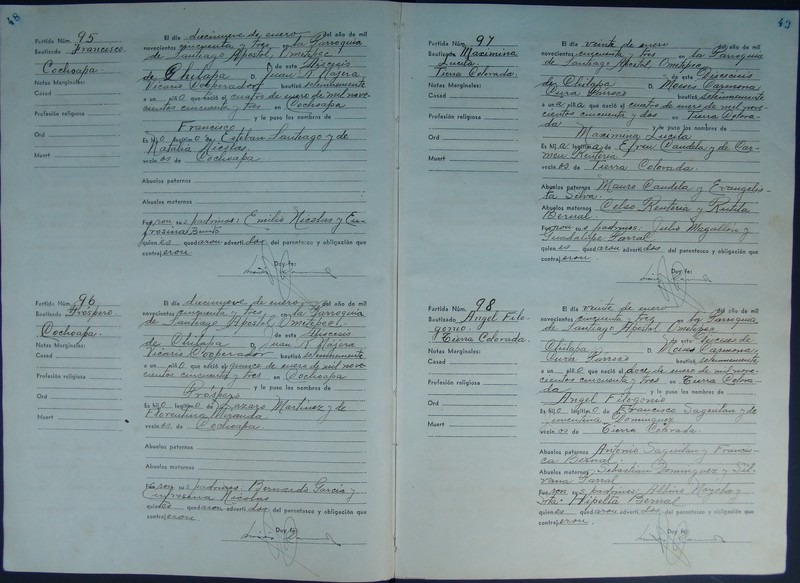 48
Partida Núm. 95
Bautizado Francisco.
Cochoapa.
Notas Marginales:
Casad
Profesión religiosa
Ord
Muert
El día diecinueve de enero del año de mil
novecientos cincuenta y tres en la Parroquia
de Santiago Apostol Ometepec.
de este Diocesis
de Chilapa D. Juan N. Najera
Vicario Cooperador bautizó solemnemente
a un niño que nació el cuatro de enero de mil nove-
cientos cincuenta y tres en Cochoapa
y le puso los nombres de
Francisco
Es hijo legítimo de Esteban Santiago y de
Natalia Nicolas.
vecinos de Cochoapa
Abuelos paternos
Abuelos maternos
Fueron sus padrinos: Emilio Nicolas y Eu-
frosina Bruno
quienes quedaron advertidos del parentesco y obligación que
contrajeron.
Doy fe:
Partida Núm. 96
Bautizado Prospero.
Cochoapa.
Notas Marginales:
Casad
Profesión religiosa
Ord
Muert
El día diecinueve de enero del año de mil
novecientos cincuenta y tres en la Parroquia
de Santiago Apostol Ometepec.
de este Diocesis
de Chilapa D. Juan N. Najera
Vicario Cooperador bautizó solemnemente
a un niño que nació el quince de enero de mil nove-
cientos cincuenta y tres en Cochoapa
y le puso los nombres de
Prospero
Es hijo legítimo de Lazaro Martinez y de
Florentina Miranda
vecinos de Cochoapa
Abuelos paternos
Abuelos maternos
Fueron sus padrinos: Bernardo Garcia y
Eufrosina Nicolas
quienes quedaron advertidos del parentesco y obligación que
contrajeron
Doy fe:
49
Partida Núm. 97
Bautizada Maximina
Lucila.
Tierra Colorada.
Notas Marginales:
Casad
Profesión religiosa
Ord
Muert
El día veinte de enero del año de mil
novecientos cincuenta y tres en la Parroquia
de Santiago Apostol Ometepec
de este Diocesis
de Chilapa D. Moises Carmona
Cura Parroco bautizó solemnemente
a una niña que nació el cuatro de enero de mil nove-
cientos cincuenta y dos en Tierra Colora-
da y le puso los nombres de
Maximina Lucila
Es hija legítima de Efren Candela y de Car-
men Renteria
vecinos de Tierra Colorada.
Abuelos paternos Mauro Candela y Evangelis-
ta Silva.
Abuelos maternos Celso Renteria y Rutila
Bernal.
Fueron sus padrinos: Julio Magallon y
Guadalupe Parral
quienes quedaron advertidos del parentesco y obligación que
contrajeron.
Doy fe:
Partida Núm. 98
Bautizado Angel Filo-
gonio.
Tierra Colorada.
Notas Marginales:
Casad
Profesión religiosa
Ord
Muert
El día veinte de enero del año de mil
novecientos cincuenta y tres en la Parroquia
de Santiago Apostol Ometepec
de este Diocesis de
Chilapa D. Moises Carmona
Cura Parroco bautizó solemnemente
a un niño que nació el doce de enero de mil nove-
cientos cincuenta y tres en Tierra Colora-
da y le puso los nombres de
Angel Filogonio
Es hijo legítimo de Francisco Saguilan y de
Dominguez
vecinos de Tierra Colorada
Abuelos paternos Antonio Saguilan y Francis-
ca Bernal.
Abuelos maternos Sebastian Dominguez y Sil-
vana Parral
Fueron sus padrinos: Albino y
Bernal
quienes quedaron advertidos del parentesco y obligación que
contrajeron.
Doy fe: